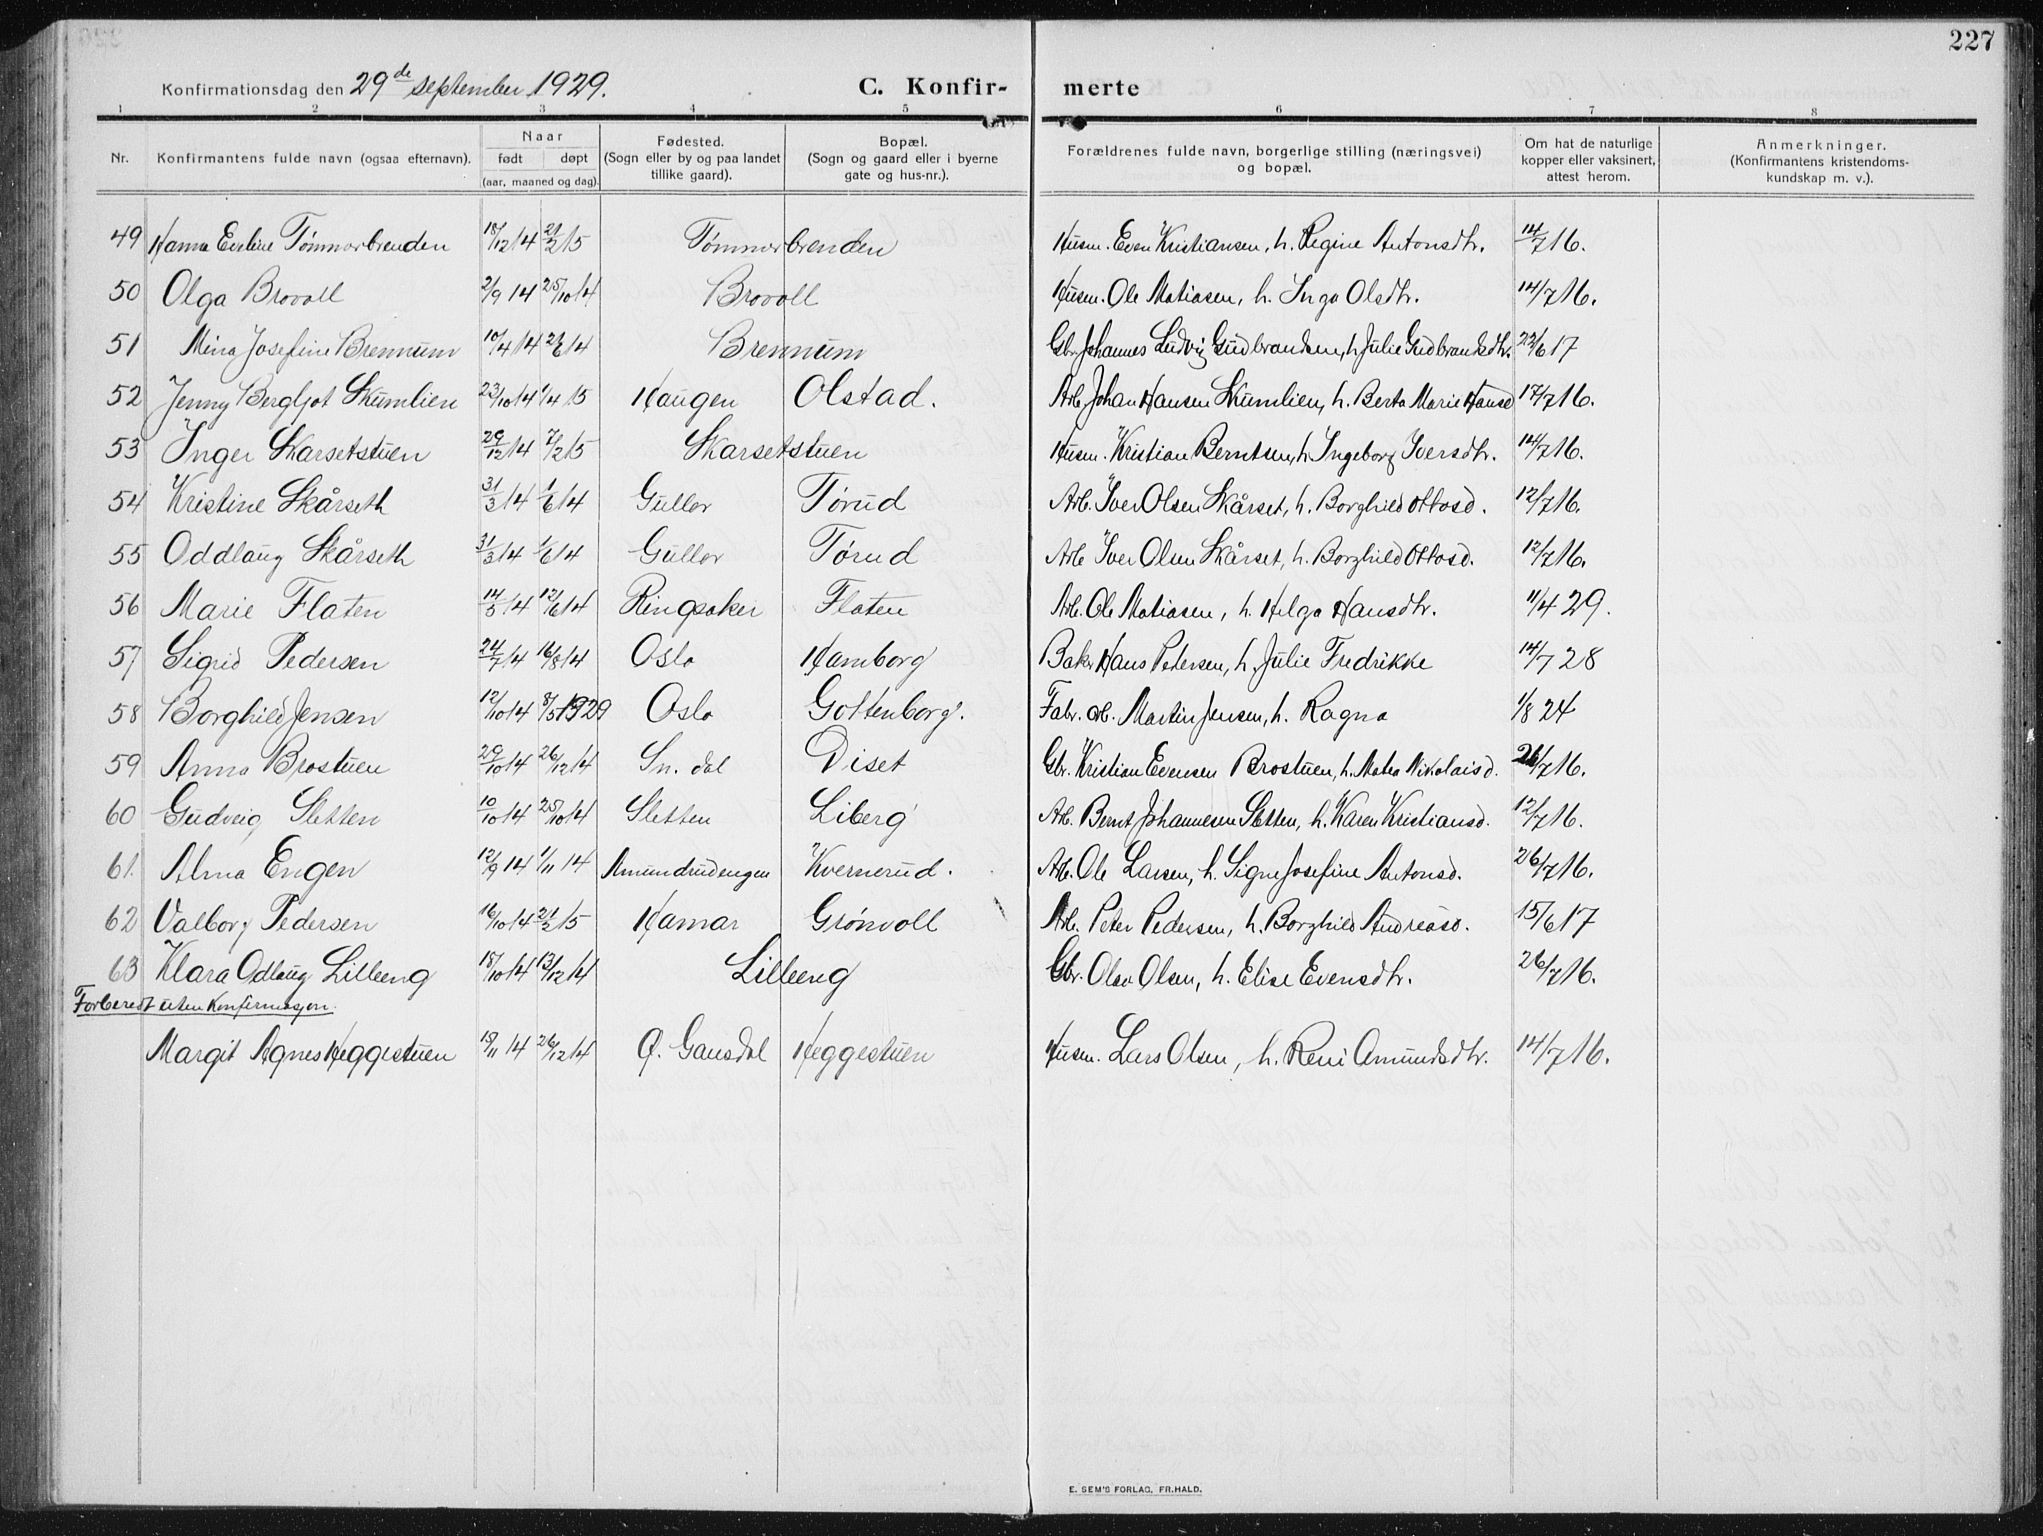 227
Konfirmationsdag den 29de september 1929. C. Konfir- merte
1 2 3 4 5 6 7 8
Nr. Konfirmantens fulde navn (ogsaa efternavn). Naar født døpt (aar, maaned og dag). Fødested. (Sogn eller by og paa landet tillike gaard). Bopæl. (Sogn og gaard eller i byerne gate og hus-nr.). Forældrenes fulde navn, borgerlige stilling (næringsvei) og bopæl. Om hat de naturlige kopper eller vaksinert, attest herom. Anmerkninger. (Konfirmantens kristendoms- kundskap m. v.).
49 Hanna Eveline Tømmerbrenden 18/12 14 21/2 15 Tømmerbrenden Husm. Even Kristiansen, h. Regine Antonsdtr. 14/7 16.
50 Olga Brovoll 2/9 14 25/10 14 Brovoll Husm. Ole Matiasen, h. Inga Olsdtr. 14/7 16.
51 Mina Josefine Brennum 10/4 14 2/6 14 Brennum Gbr. Johannes Ludvig Gudbrandsen, h. Julie Gudbrandsdtr. 22/6 17
52 Jenny Bergljot Skumlien 23/10 14 1/4 15 Haugen Olstad. Arb. Johan Hansen Skumlien, h. Berta Marie Hansd 17/7 16.
53 Inger Skarsetstuen 29/12 14 7/2 15 Skarsetstuen Husm. Kristian Berntsen, h. Ingeborg Iversdtr. 14/7 16.
54 Kristine Skårseth 31/3 14 1/6 14 Gullor Tørud Arb. Iver Olsen Skårset, h. Borghild Ottosd. 12/7 16.
55 Oddlaug Skårseth 31/3 14 1/6 14 Gullor Tørud Arb Iver Olsen Skårset, h. Borghild Ottosd. 12/7 16.
56 Marie Flaten 14/5 14 12/6 14 Ringsaker Flaten Arb. Ole Matiasen, h. Helga Hansdtr. 11/4 29.
57 Sigrid Pedersen 24/7 14 16/8 14 Oslo Hamborg Baker Hans Petersen, h. Julie Fredrikke 14/7 28
58 Borghild Jensen 12/10 14 8/5 1929 Oslo Gottenborg. Fabr. arb. Martin Jensen, h. Ragna 1/8 24
59 Anna Brostuen 29/10 14 26/12 14 Sn. dal Diset Gbr. Kristian Evensen Brostuen, h. Matea Nikolaisd. 26/7 16.
60 Gudveig Sletten 10/10 14 25/10 14 Sletten Liberg Arb. Bernt Johannesen Sletten, h. Karen Kristiansd. 12/7 16.
61. Alma Engen 12/9 14 1/11 14 Amundrudengen Kvernerud. Arb. Ole Larsen, h. Signe Josefine Antonsd. 26/7 16.
62 Valborg Pedersen 16/10 14 21/2 15 Hamar Grønvoll Arb. Peter Pedersen, h. Borghild Andreasd. 15/6 17
63 Klara Odlaug Lilleeng 18/10 14 13/12 14 Lilleeng Gbr. Olav Olsen, h. Elise Evensdtr. 26/7 16.
Forberedt uten Konfirmasjon.
Margit Agnes Heggestuen 18/11 14 26/12 14 Ø. Gausdal Heggestuen Husm. Lars Olsen, h. Reni Amundsdtr. 14/7 16.
E. SEM'S FORLAG, FR.HALD.